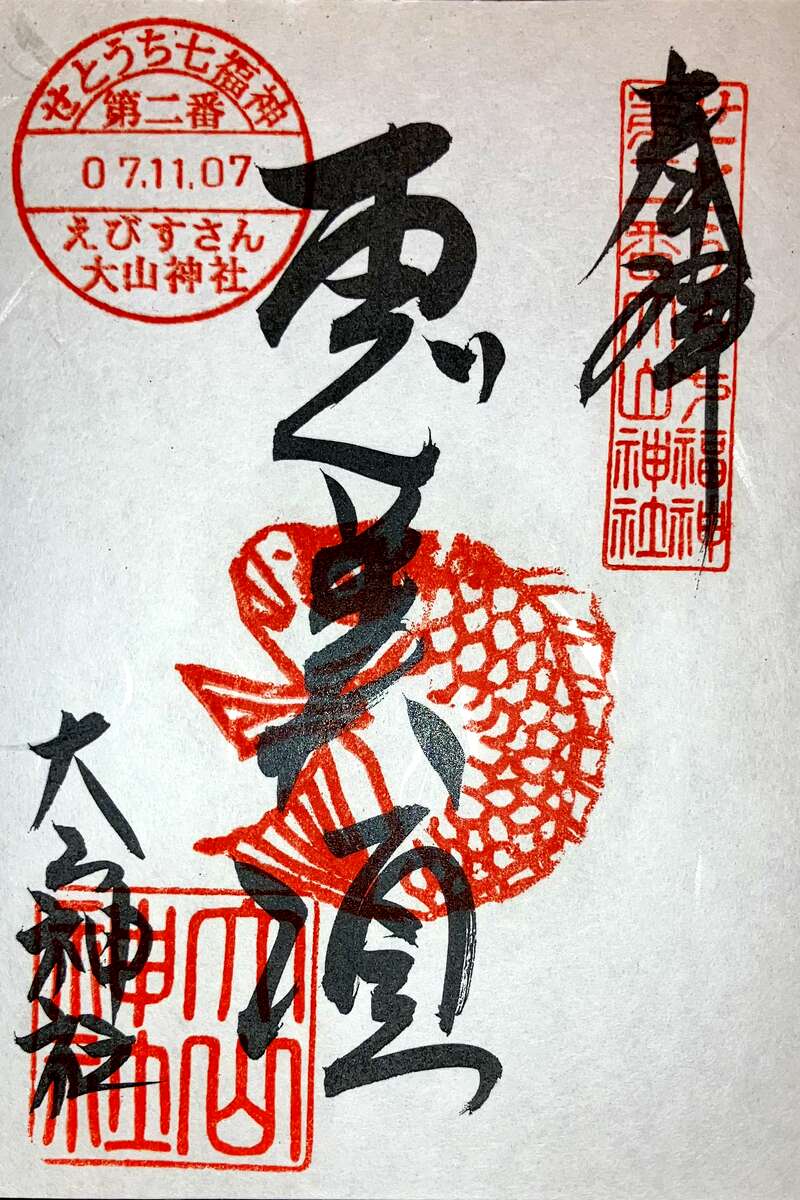 せとうち七福神
第二番
07.11.07
えびすさん
大山神社
奉拝
第二番大山神社
恵美須
大山神社
大山
神社